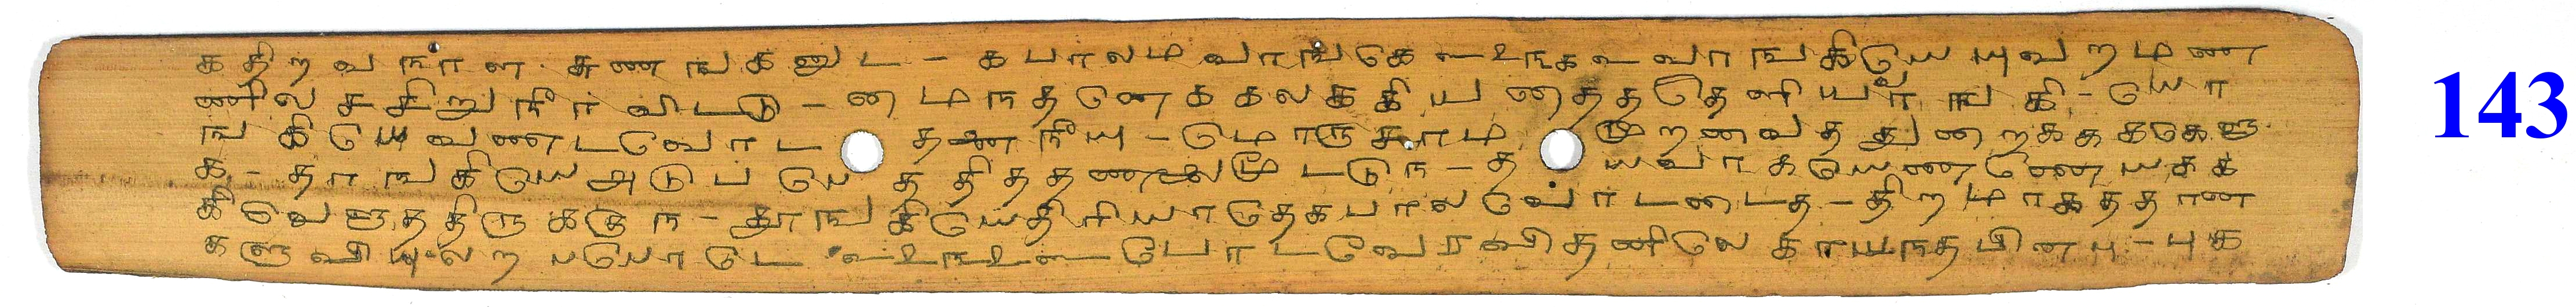 கதிறவநான. சுணஙகனுட - கபாலமவாஙகே உஉஙகஉ வாஙகியெயுவறமண
ணில சசிறுநீர விடடு - ன மநதனெககலககியனததெளியவாஙகி - யொ
ஙகியெவணடவொட தணநீயு - மொருசாம மூறணவதது னறககககெரு
க - தாஙகியெஅடுபயெததிததணலமூடடுந - த யவாகயெணணெயகக
கிவெளுததிருககுந - தூஙகியெதிரியாதெகபாலவொடடைத - திறமாகததாண
களுவியுலறயயொடெ உஉஙஉஉ பொடவெரவிதணிலெ காயநதபினபு - புக
143